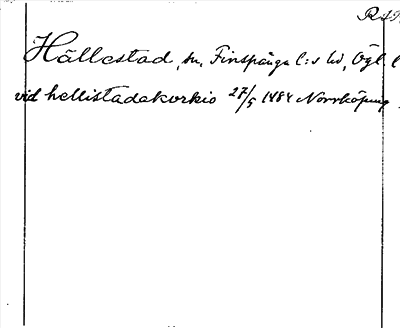 Hällestad, sn, Finspånga l:s hd, Ögl. l
vid hellistadakorkio 27/5 1484 Norrköping